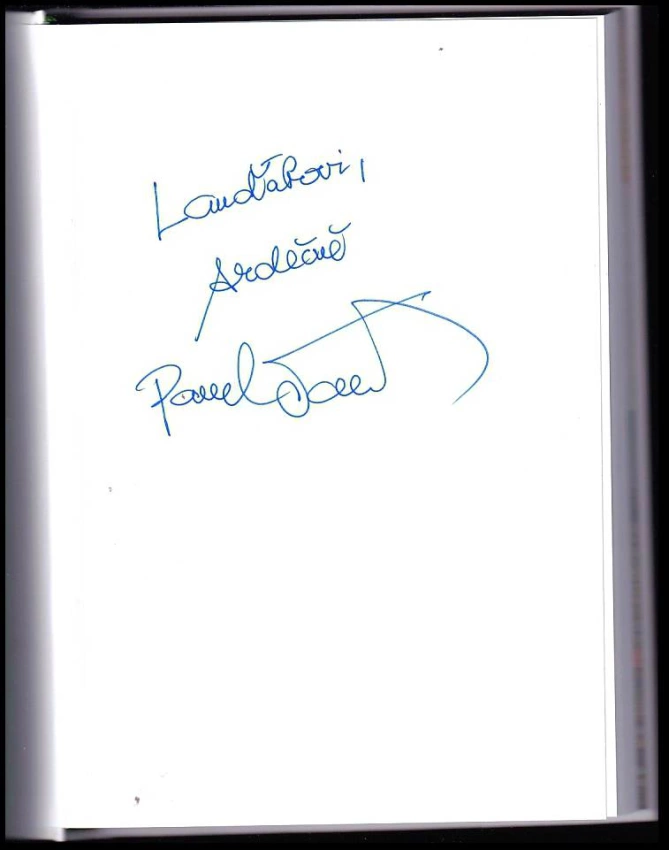 Landťákovi,
srdečně
Pavel